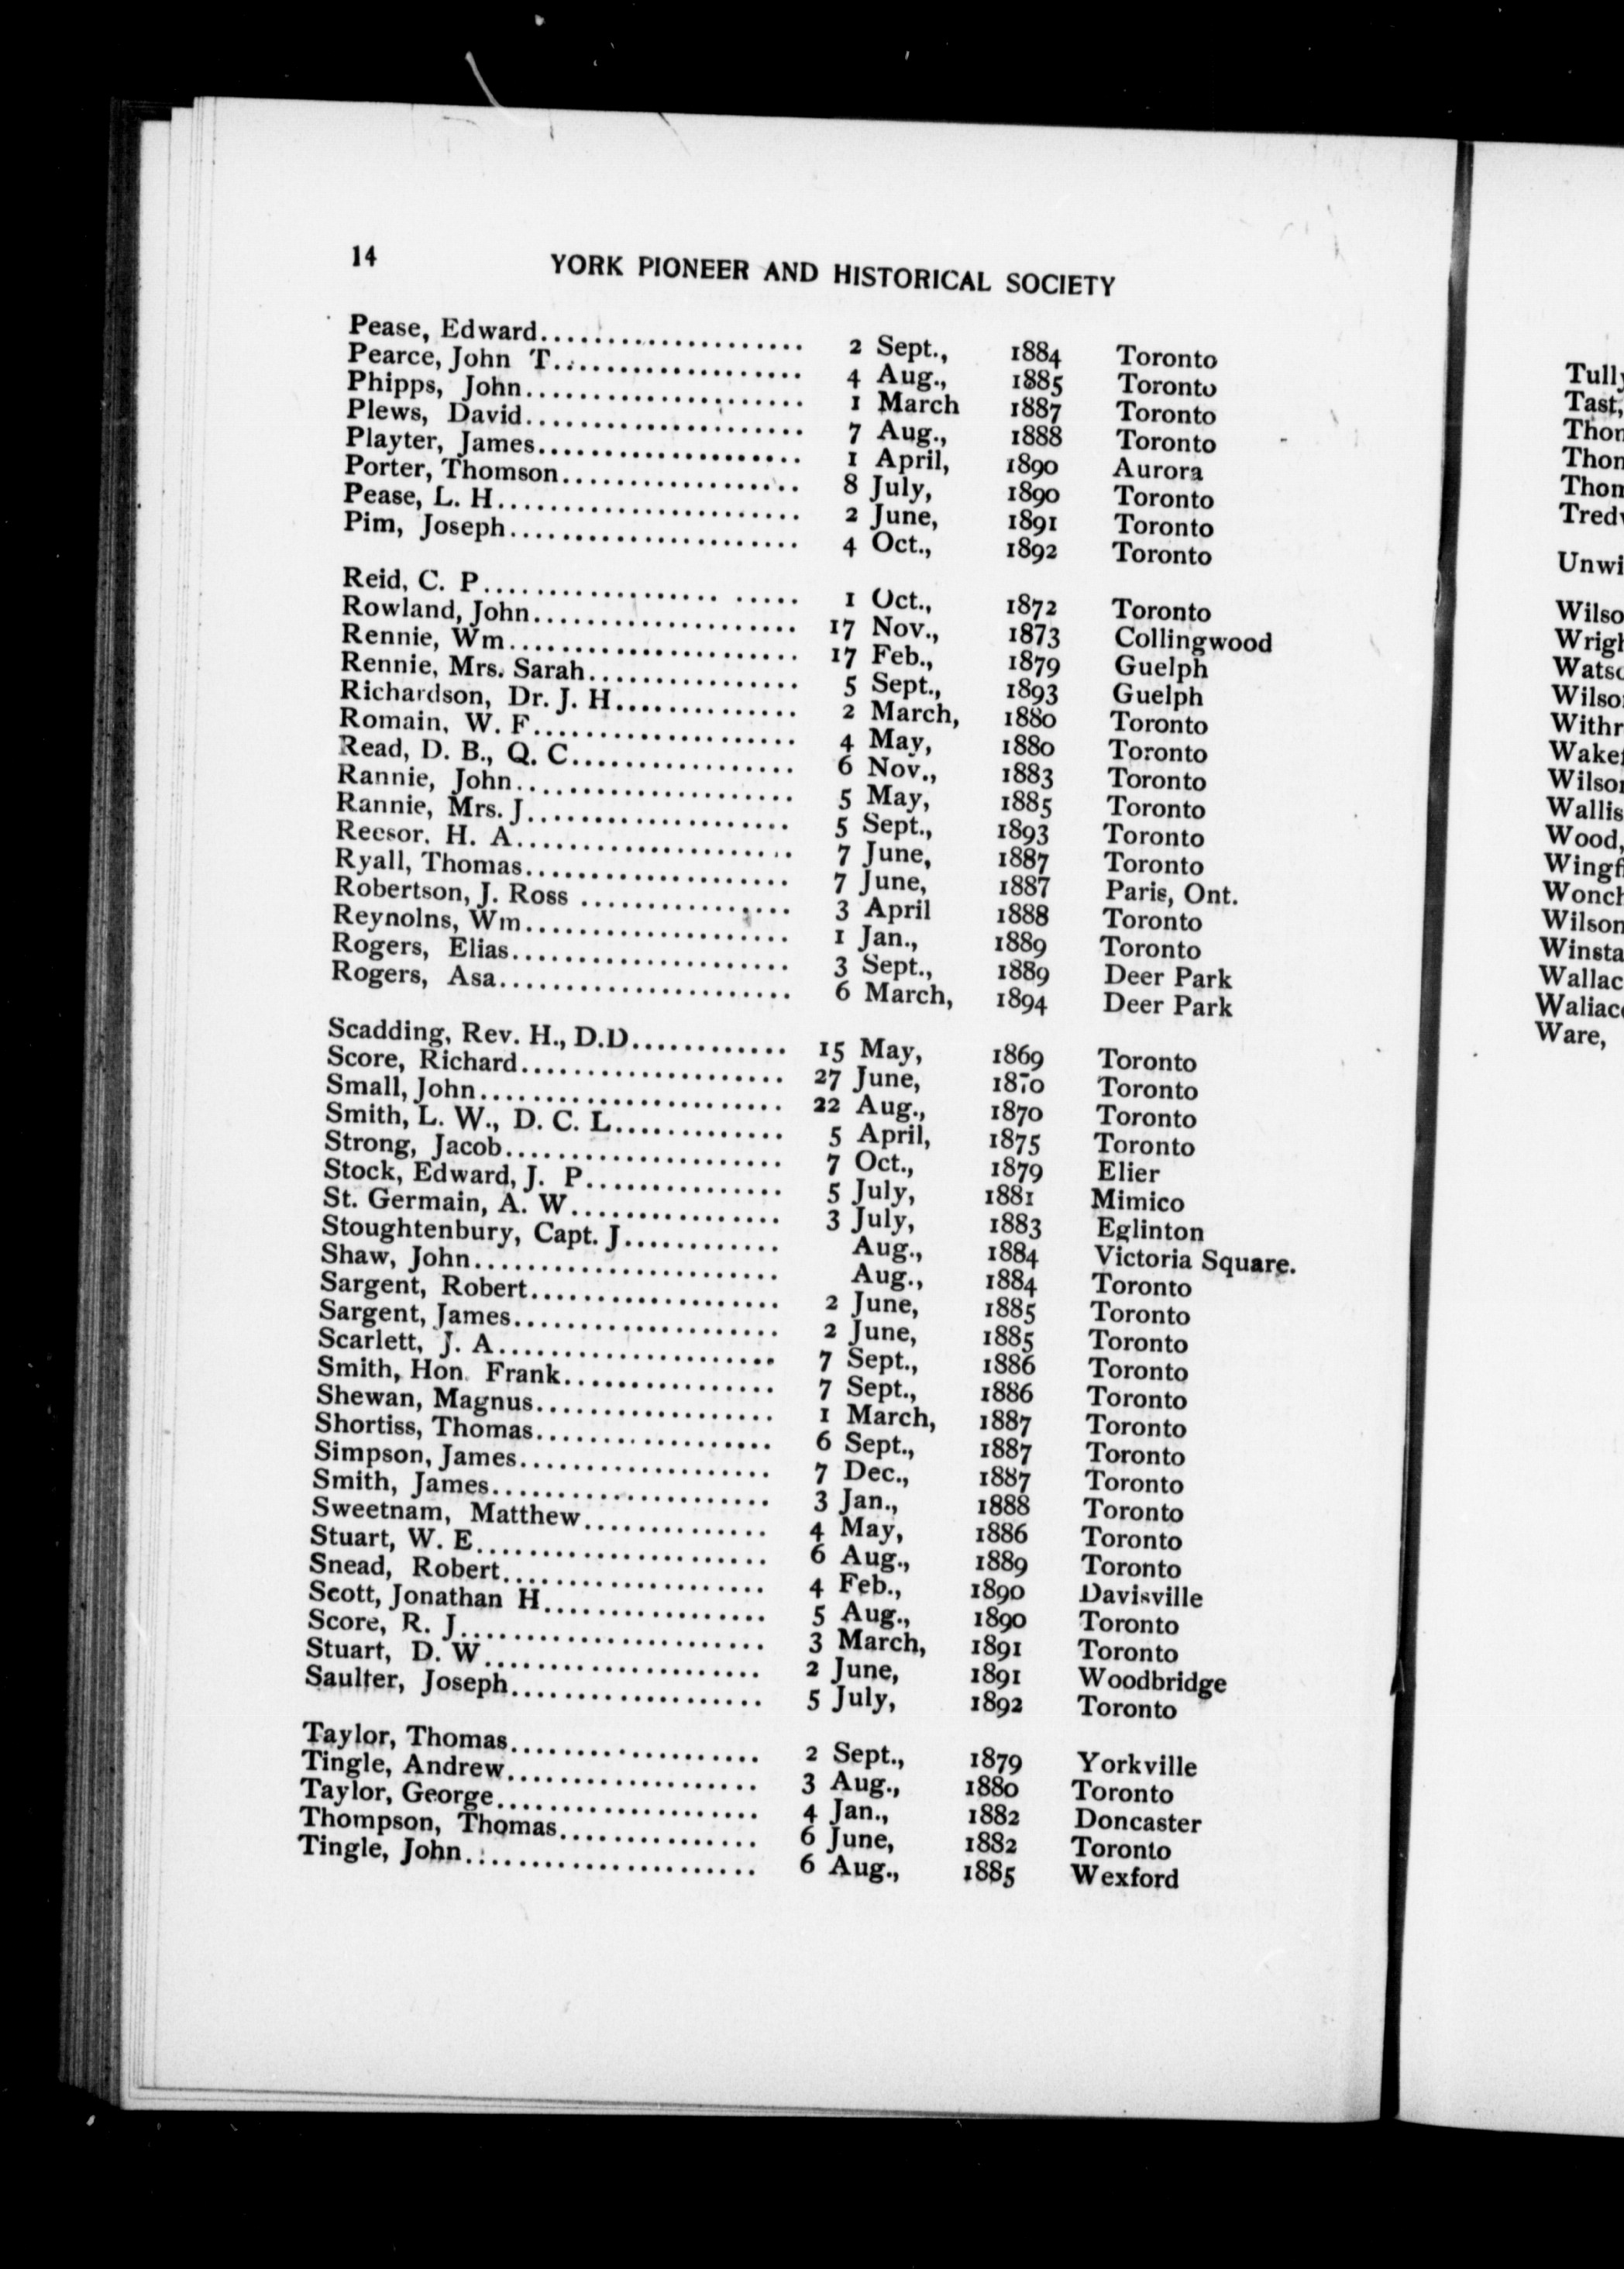 14 YORK PIONEER AND HISTORICAL SOCIETY
Pease, Edward..................... 2 Sept., 1884 Toronto
Pearce, John T.................... 4 Aug., 1885 Toronto
Phipps, John...................... 1 March 1887 Toronto
Plews, David...................... 7 Aug., 1888 Toronto
Playter, James.................... 1 April, 1890 Aurora
Porter, Thomson.................. 8 July, 1890 Toronto
Pease, L. H....................... 2 June, 1891 Toronto
Pim, Joseph...................... 4 Oct., 1892 Toronto
Reid, C. P.................. ..... 1 Oct., 1872 Toronto
Rowland, John.................... 17 Nov., 1873 Collingwood
Rennie, Wm...................... 17 Feb., 1879 Guelph
Rennie, Mrs. Sarah................ 5 Sept., 1893 Guelph
Richardson, Dr. J. H.............. 2 March, 1880 Toronto
Romain, W. F.................... 4 May, 1880 Toronto
Read, D. B., Q. C................. 6 Nov., 1883 Toronto
Rannie, John..................... 5 May, 1885 Toronto
Rannie, Mrs. J.................... 5 Sept., 1893 Toronto
Reesor, H. A..................... 7 June, 1887 Toronto
Ryall, Thomas.................... 7 June, 1887 Paris, Ont.
Robertson, J. Ross ................ 3 April 1888 Toronto
Reynolns, Wm.................... 1 Jan., 1889 Toronto
Rogers, Elias..................... 3 Sept., 1889 Deer Park
Rogers, Asa...................... 6 March, 1894 Deer Park
Scadding, Rev. H., D.D............ 15 May, 1869 Toronto
Score, Richard.................... 27 June, 1870 Toronto
Small, John....................... 22 Aug., 1870 Toronto
Smith, L. W., D. C. L............. 5 April, 1875 Toronto
Strong, Jacob..................... 7 Oct., 1879 Elier
Stock, Edward, J. P............... 5 July, 1881 Mimico
St. Germain, A. W................ 3 July, 1883 Eglinton
Stoughtenbury, Capt. J............ Aug., 1884 Victoria Square.
Shaw, John....................... Aug., 1884 Toronto
Sargent, Robert................... 2 June, 1885 Toronto
Sargent, James.................... 2 June, 1885 Toronto
Scarlett, J. A..................... 7 Sept., 1886 Toronto
Smith, Hon. Frank................ 7 Sept., 1886 Toronto
Shewan, Magnus.................. 1 March, 1887 Toronto
Shortiss, Thomas.................. 6 Sept., 1887 Toronto
Simpson, James................... 7 Dec., 1887 Toronto
Smith, James..................... 3 Jan., 1888 Toronto
Sweetnam, Matthew.............. 4 May, 1886 Toronto
Stuart, W. E...................... 6 Aug., 1889 Toronto
Snead, Robert.................... 4 Feb., 1890 Davisville
Scott, Jonathan H................. 5 Aug., 1890 Toronto
Score, R. J....................... 3 March, 1891 Toronto
Stuart, D. W..................... 2 June, 1891 Woodbridge
Saulter, Joseph................... 5 July, 1892 Toronto
Taylor, Thomas................... 2 Sept., 1879 Yorkville
Tingle, Andrew................... 3 Aug., 1880 Toronto
Taylor, George.................... 4 Jan., 1882 Doncaster
Thompson, Thomas............... 6 June, 1882 Toronto
Tingle, John...................... 6 Aug., 1885 Wexford
Tast,
Wood,
Ware,